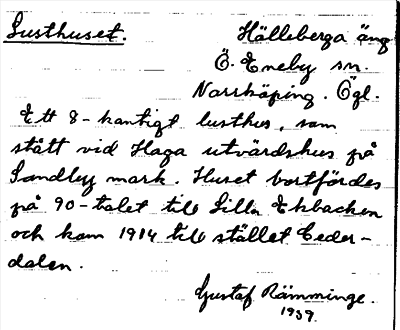 Lusthuset. Hälleberga äng
Ö. Eneby sn.
Norrköping. Ögl.
Ett 8-kantigt lusthus, som
stått vid Haga utvärdshus på
Sandby mark. Huset bortfördes
på 90-talet till Lilla Ekbacken
och kom 1914 till stället Ceder-
dalen.
Gustaf Rämminge.
1939.